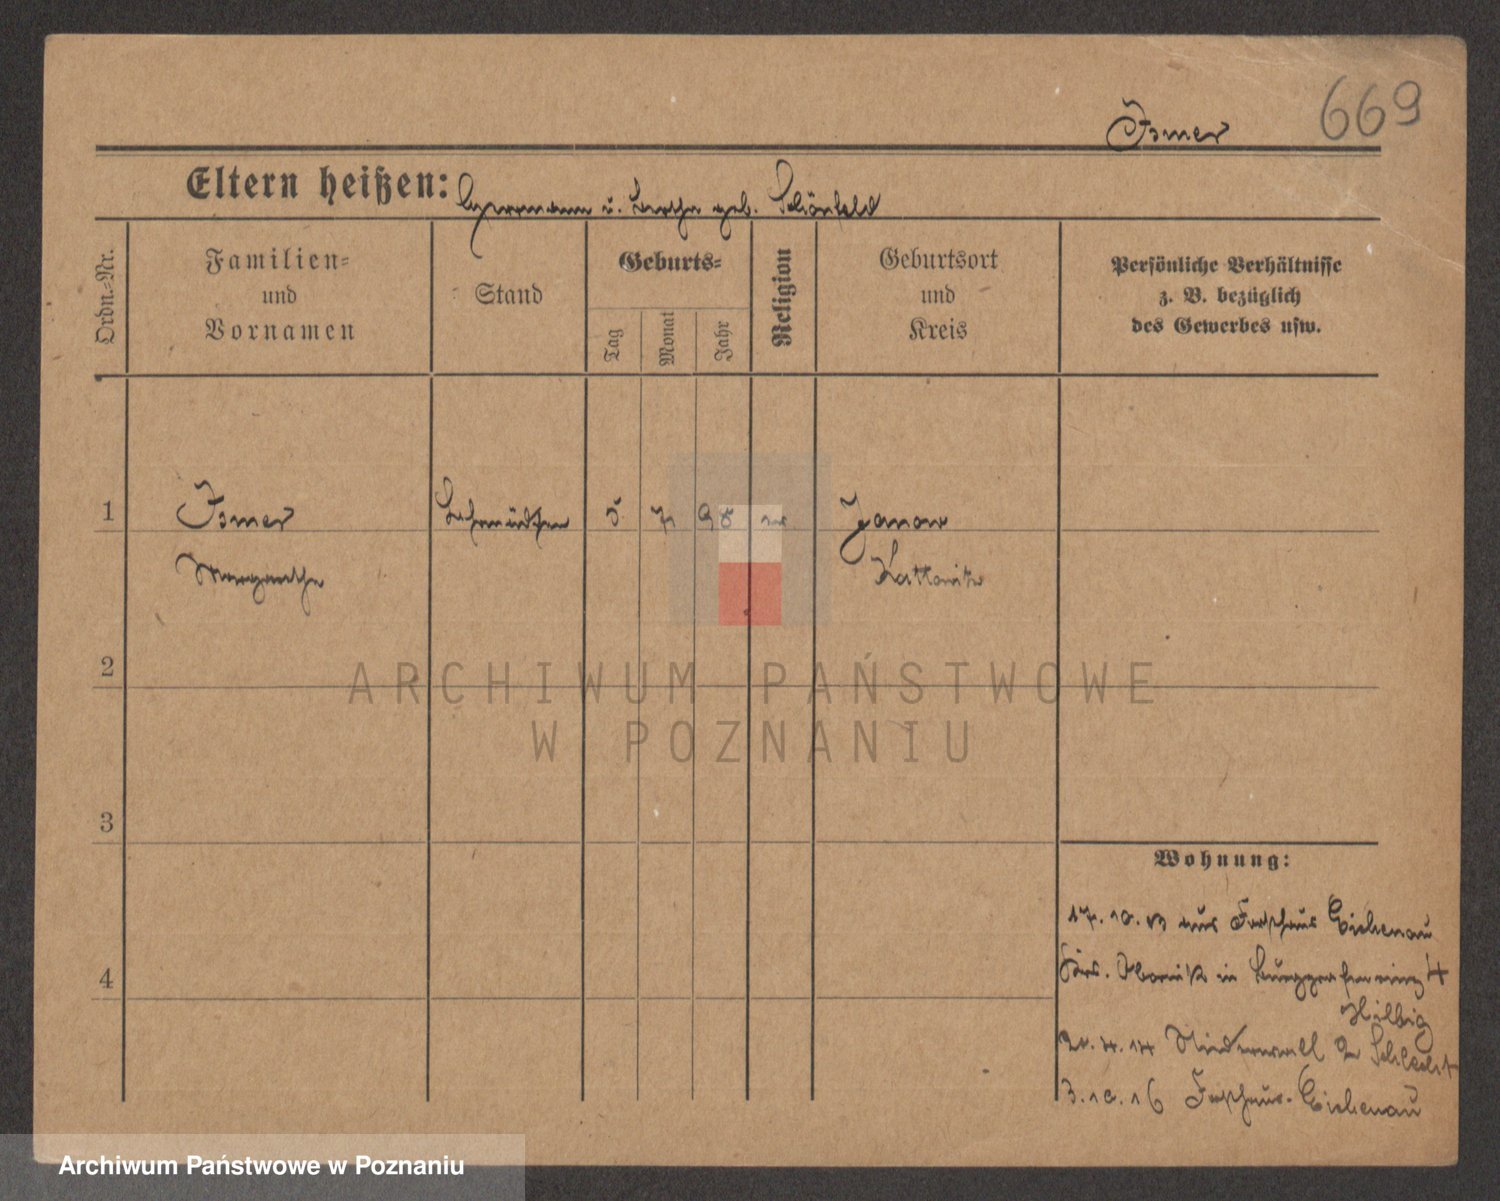 669
Ismer
Eltern heißen: Herrmann u. Bertha geb. Schönfeld
Ordn.-Nr.
Familien- und Vornamen
Stand
Geburts-
Tag
Monat
Jahr
Religion
Geburtsort und Kreis
Persönliche Verhältnisse
z. B. bezüglich
des Gewerbes usw.
1 Ismer Lehrmädchen 5 7 98 Janow
Margarethe Kattowitz
2
ARCHIWUM PAŃSTWOWE
W POZNANIU
3
Wohnung:
17.10.13 aus Forsthaus Eichenau
4 Krs. Obornik in Burggrafenring 4
Hilbig
20.4.14 Niederwall 2 Schlecht
3.10.16 Forsthaus Eichenau
Archiwum Państwowe w Poznaniu